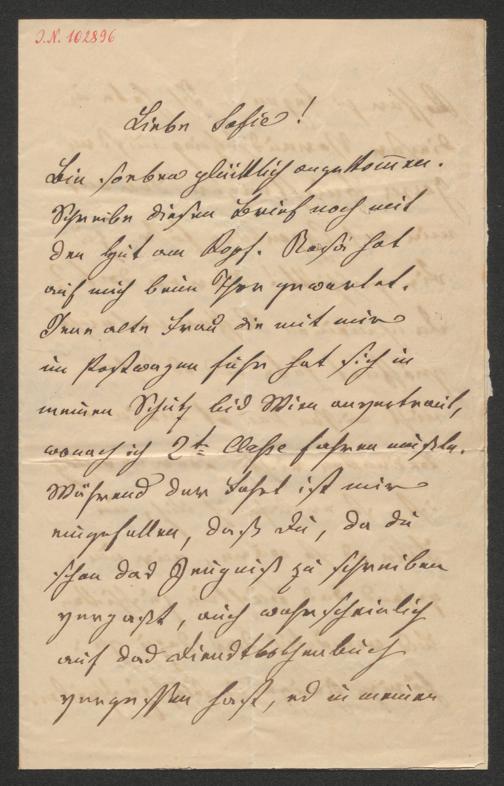 J.N. 102896
Liebe Sofie!
Bin soeben glücklich angekom̄en.
Schreibe diesen Brief noch mit
den Hut am Kopf. hat
auf mich beim Thor gewartet.
Jene alte Frau die mit mir
im Postwagen fuhr hat sich in
meinen Schutz bis Wien anvertraut,
wonach ich 2t Classe fahren mußte.
Während der Fahrt ist mir
eingefallen, daß du, da du
schon das Zeugniß zu schreiben
vergaßt, auch wahrscheinlich
auf das Dienstbothenbuch
vergessen hast, es in meinen